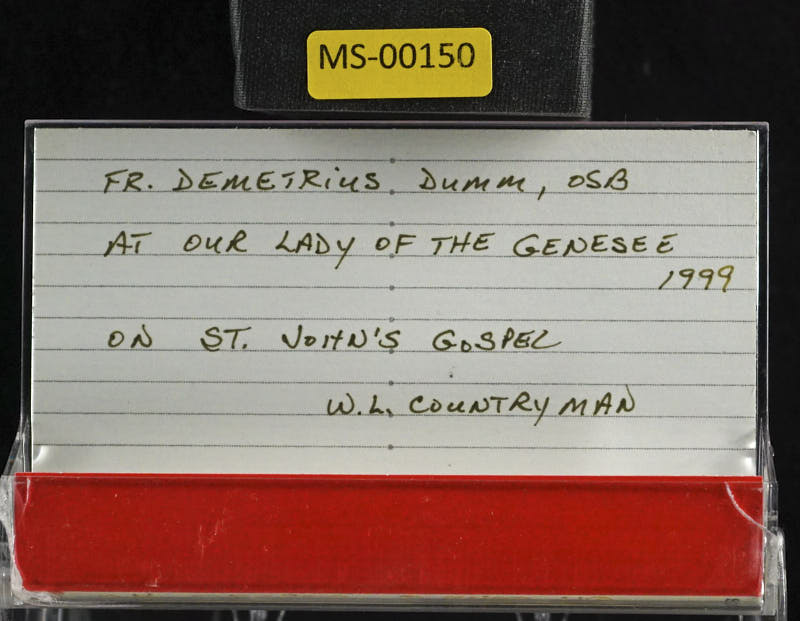 MS-00150
FR. DEMETRIUS DUMM, OSB
AT OUR LADY OF THE GENESEE
1999
ON ST. JOHN'S GOSPEL
W.L. COUNTRYMAN